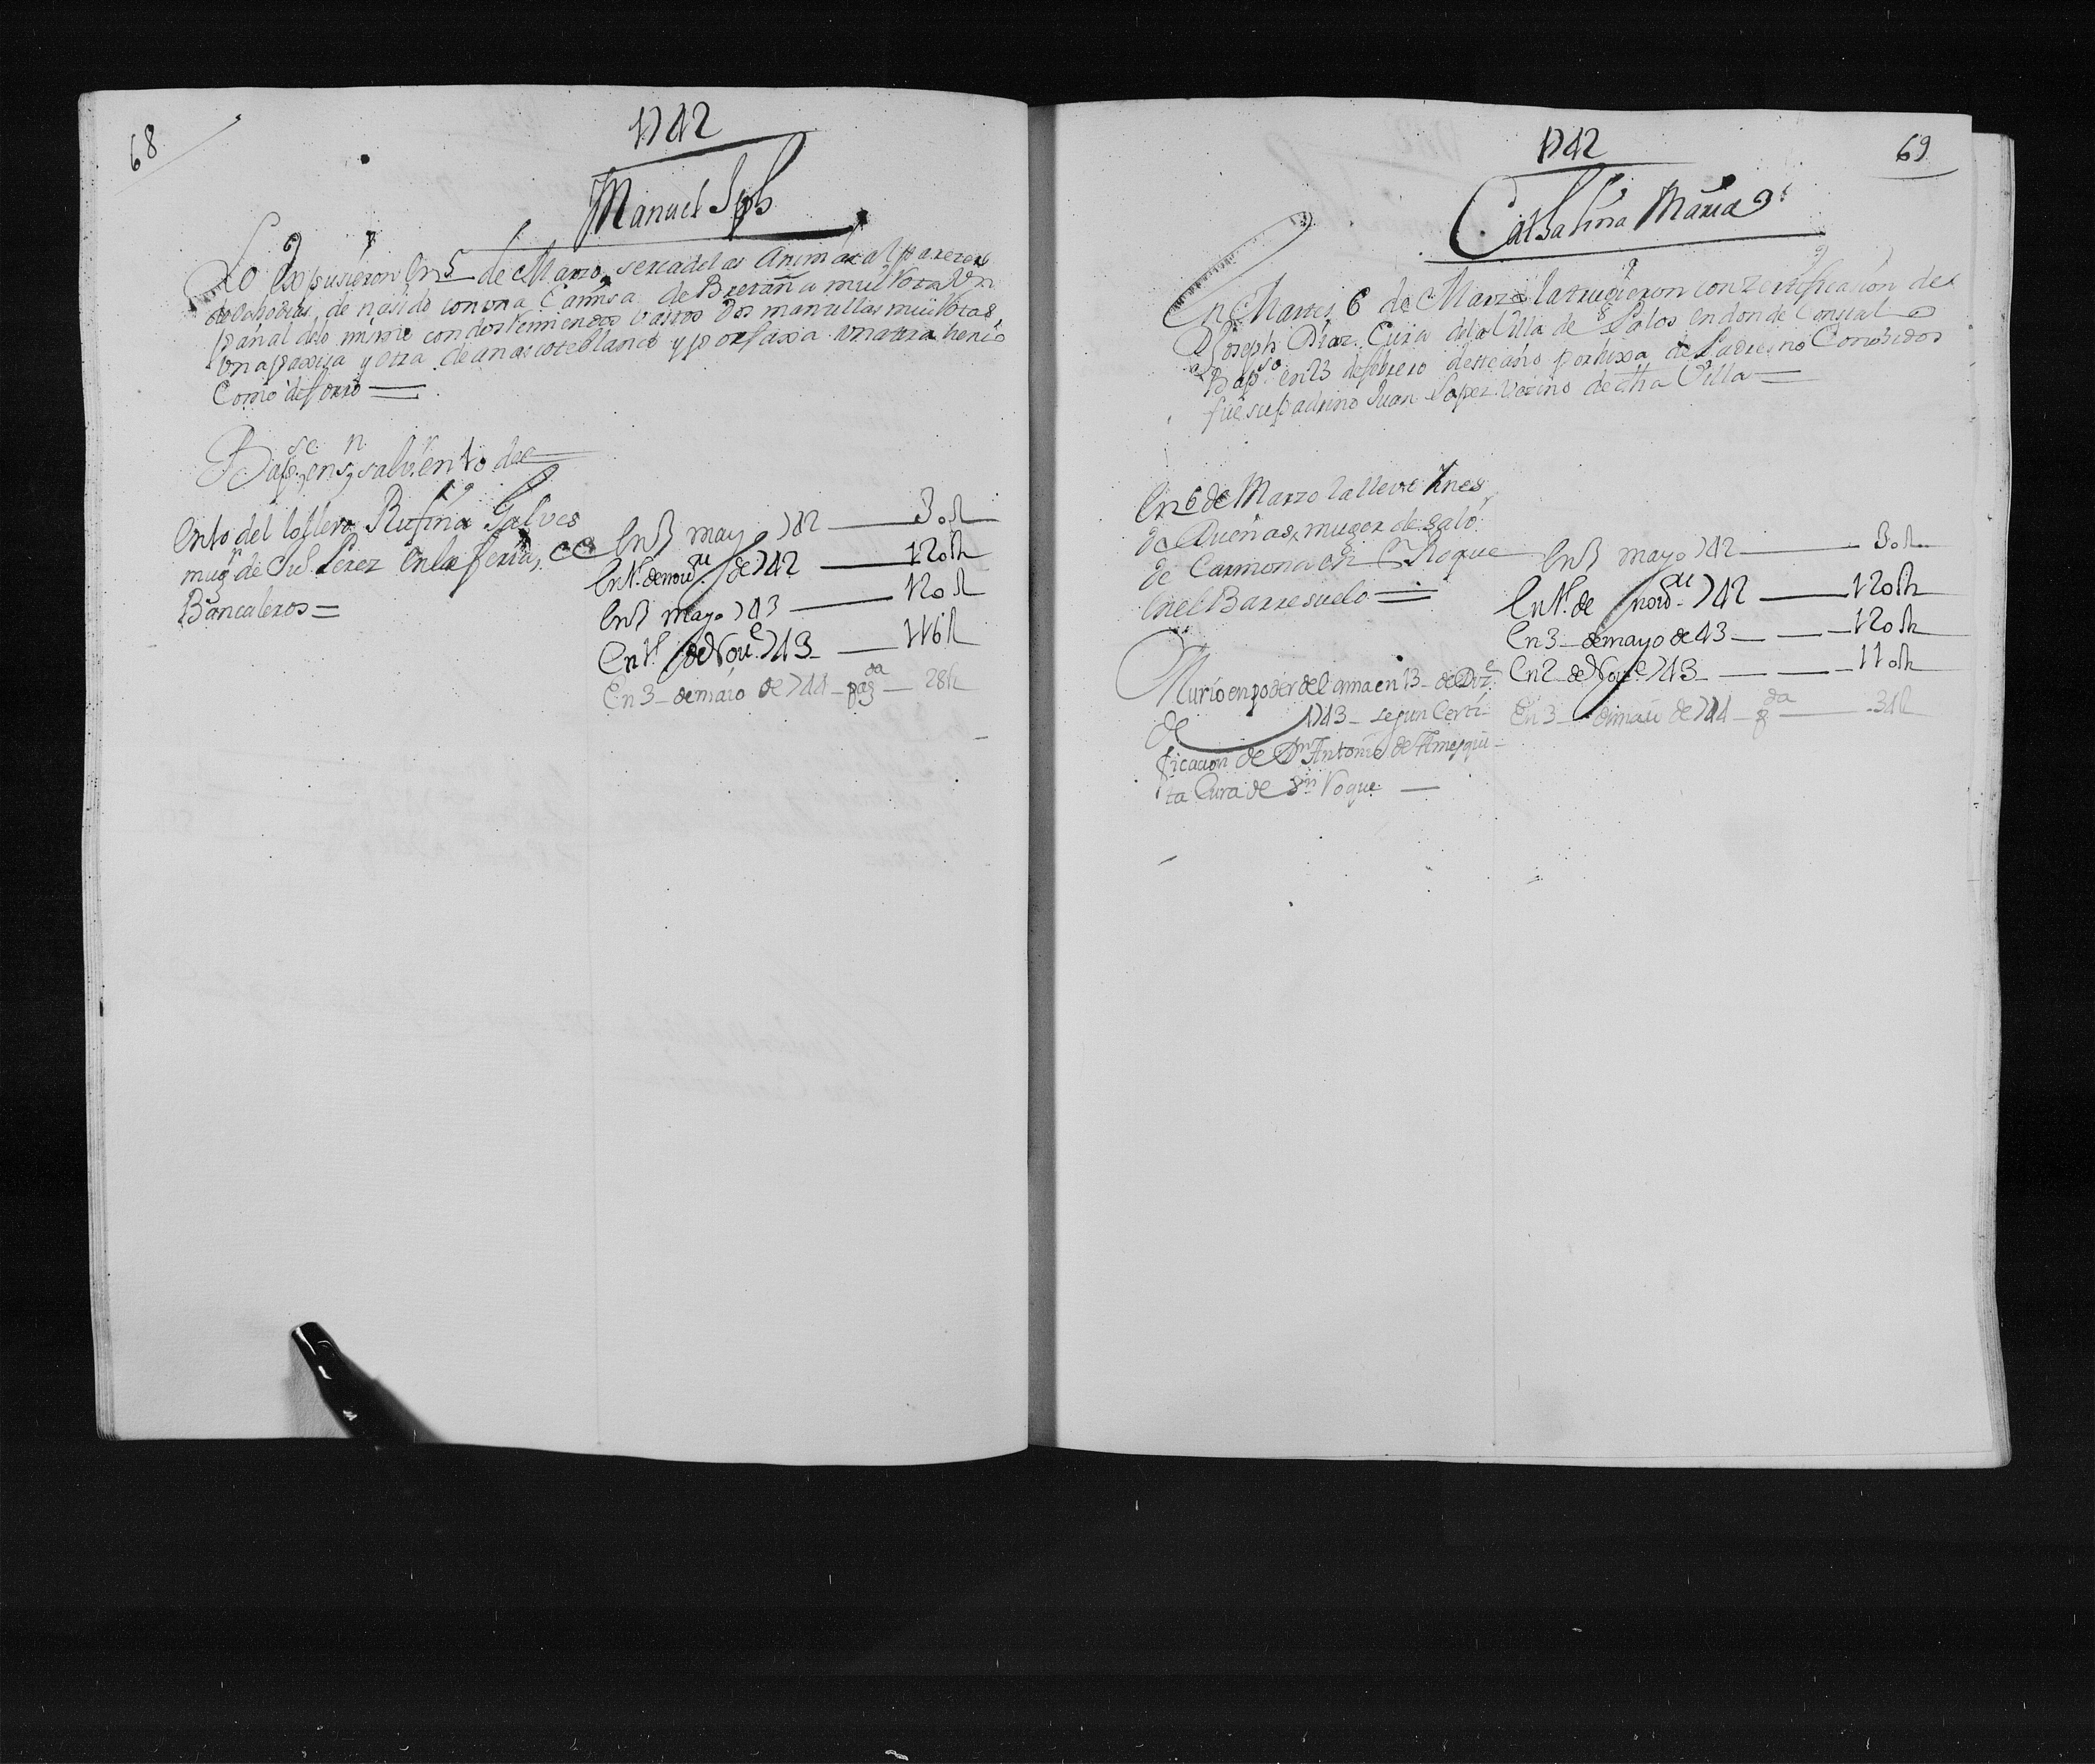 68
1742
Manuel Jph
Lo Expusieron En 5 de Marzo, serca de las Animas al parezer
de ocho dias, de nasido con una Camisa de Bretaña mui Rota Un
pañal de lo mismo con dos Remiendos vastos Dos mantillas mui Rotas,
Una paxiza y otra de anascote blanco y por faxa
Como de forro =
Bapse. en sn. salv.
en to del lo llevo Rufina Galves
mugr. de Jul. Perez en la feria, CC
Bancaleros =
En 3 mayo 742 — 30 R
En 1º. de novre. de 742 — 120 R
En 3 mayo 743 — 120 R
En 1º. de Nove. 743 — 116 R
En 3 de maio de 744 — pagda — 28 R
1742
69
Cathalina Maria
En Martes 6 de Marzo la trugieron con Zertificasion de
Dn Joseph Diaz Cura de la Villa de Palos en donde Consta la
Bapso. en 23 de febrero deste año por hixa de Padres no Conosidos
fue su padrino Juan Lopez Vezino de dha Villa =
En 6 de Marzo la lleve Ines
de Dueñas, muger de Salo.
de Carmona en Sn Roque
en el Barresuelo =
Murio en poder del ama en 13 de Dize.
de 1743 segun Certi-
ficacion de Dn Antonio de Amesqui-
ta Cura de Sn Roque —
En 3 mayo 742 — 30 R
En 1º. de novre. 742 — 120 R
En 3 de mayo de 43 — 120 R
En 2 de Nove. 743 — 110 R
En 3 de maio de 744 — pda — 34 R